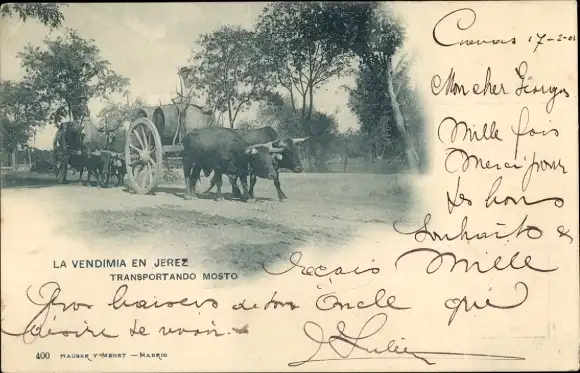 Cuevas 17-2-01
Mon cher Georges
Mille fois
Merci pour
tes bons
Souhaits &
reçois Mille
Gros baisers de ton Oncle qui
désire te voir.
J Julien
LA VENDIMIA EN JEREZ
TRANSPORTANDO MOSTO
400 HAUSER Y MENET — MADRID